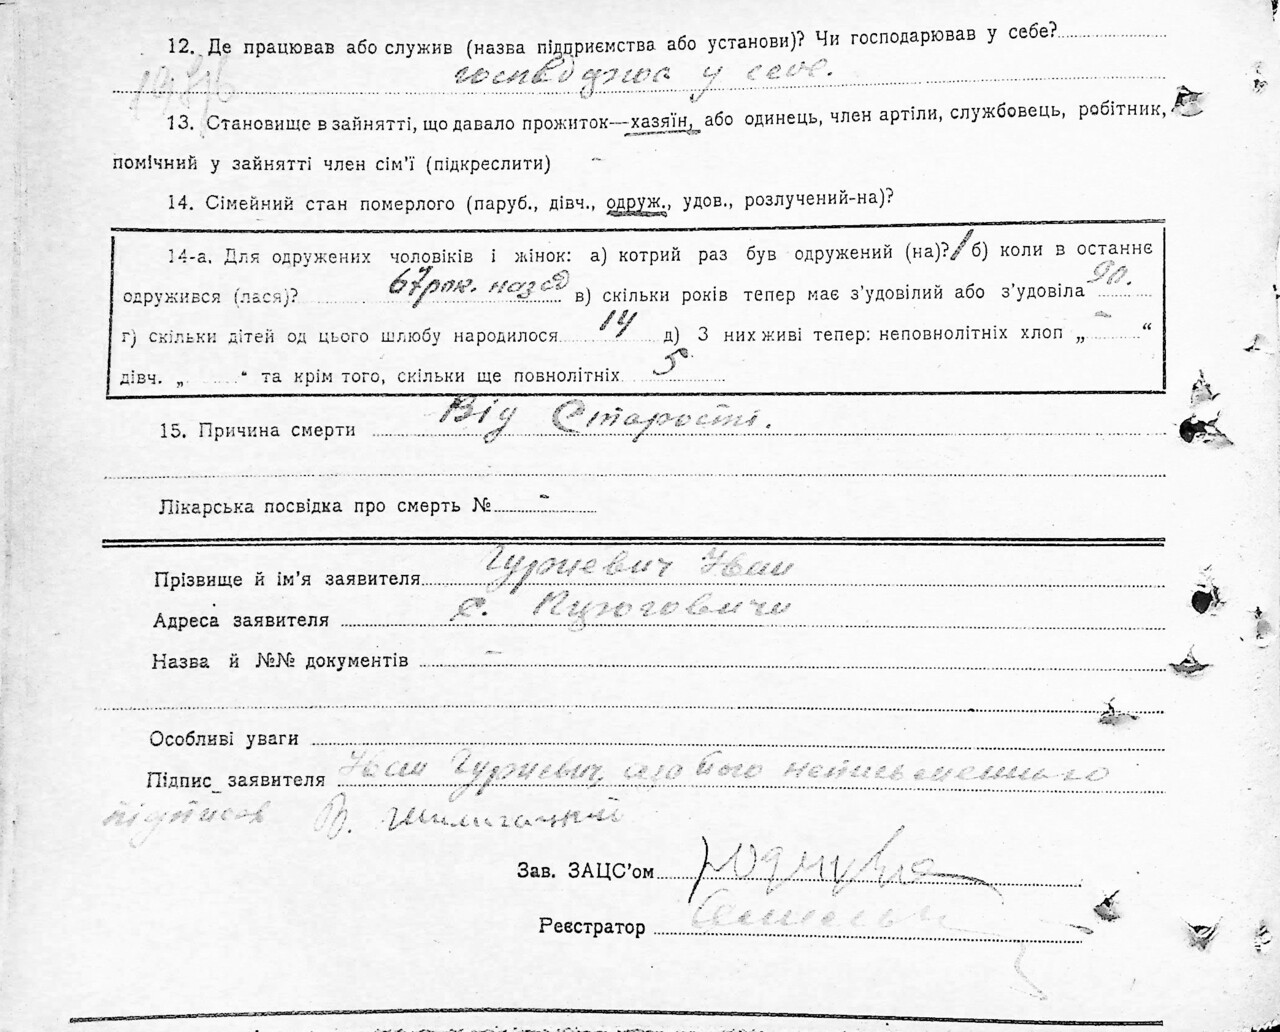 12. Де працював або служив (назва підприємства або установи)? Чи господарював у себе?
у себе.
13. Становище в зайнятті, що давало прожиток—хазяїн, або одинець, член артіли, службовець, робітник,
помічний у зайнятті член сім'ї (підкреслити) –
14. Сімейний стан померлого (паруб., дівч., одруж., удов., розлучений-на)?
14-а. Для одружених чоловіків і жінок: а) котрий раз був одружений (на)? 1 б) коли в останнє
одружився (лася)? 67 рок. назад в) скільки років тепер має з'удовілий або з'удовіла 90.
г) скільки дітей од цього шлюбу народилося 14 д) З них живі тепер: неповнолітніх хлоп „ – “
дівч. „ “ та крім того, скільки ще повнолітніх 5
15. Причина смерти Від Старости.
Лікарська посвідка про смерть № -
Прізвище й ім'я заявителя Гурневич Іван
Адреса заявителя с.
Назва й №№ документів –
Особливі уваги
Підпис заявителя Іван Гурневич, а за його неписьменного
підписав В.
Зав. ЗАЦС'ом
Реєстратор